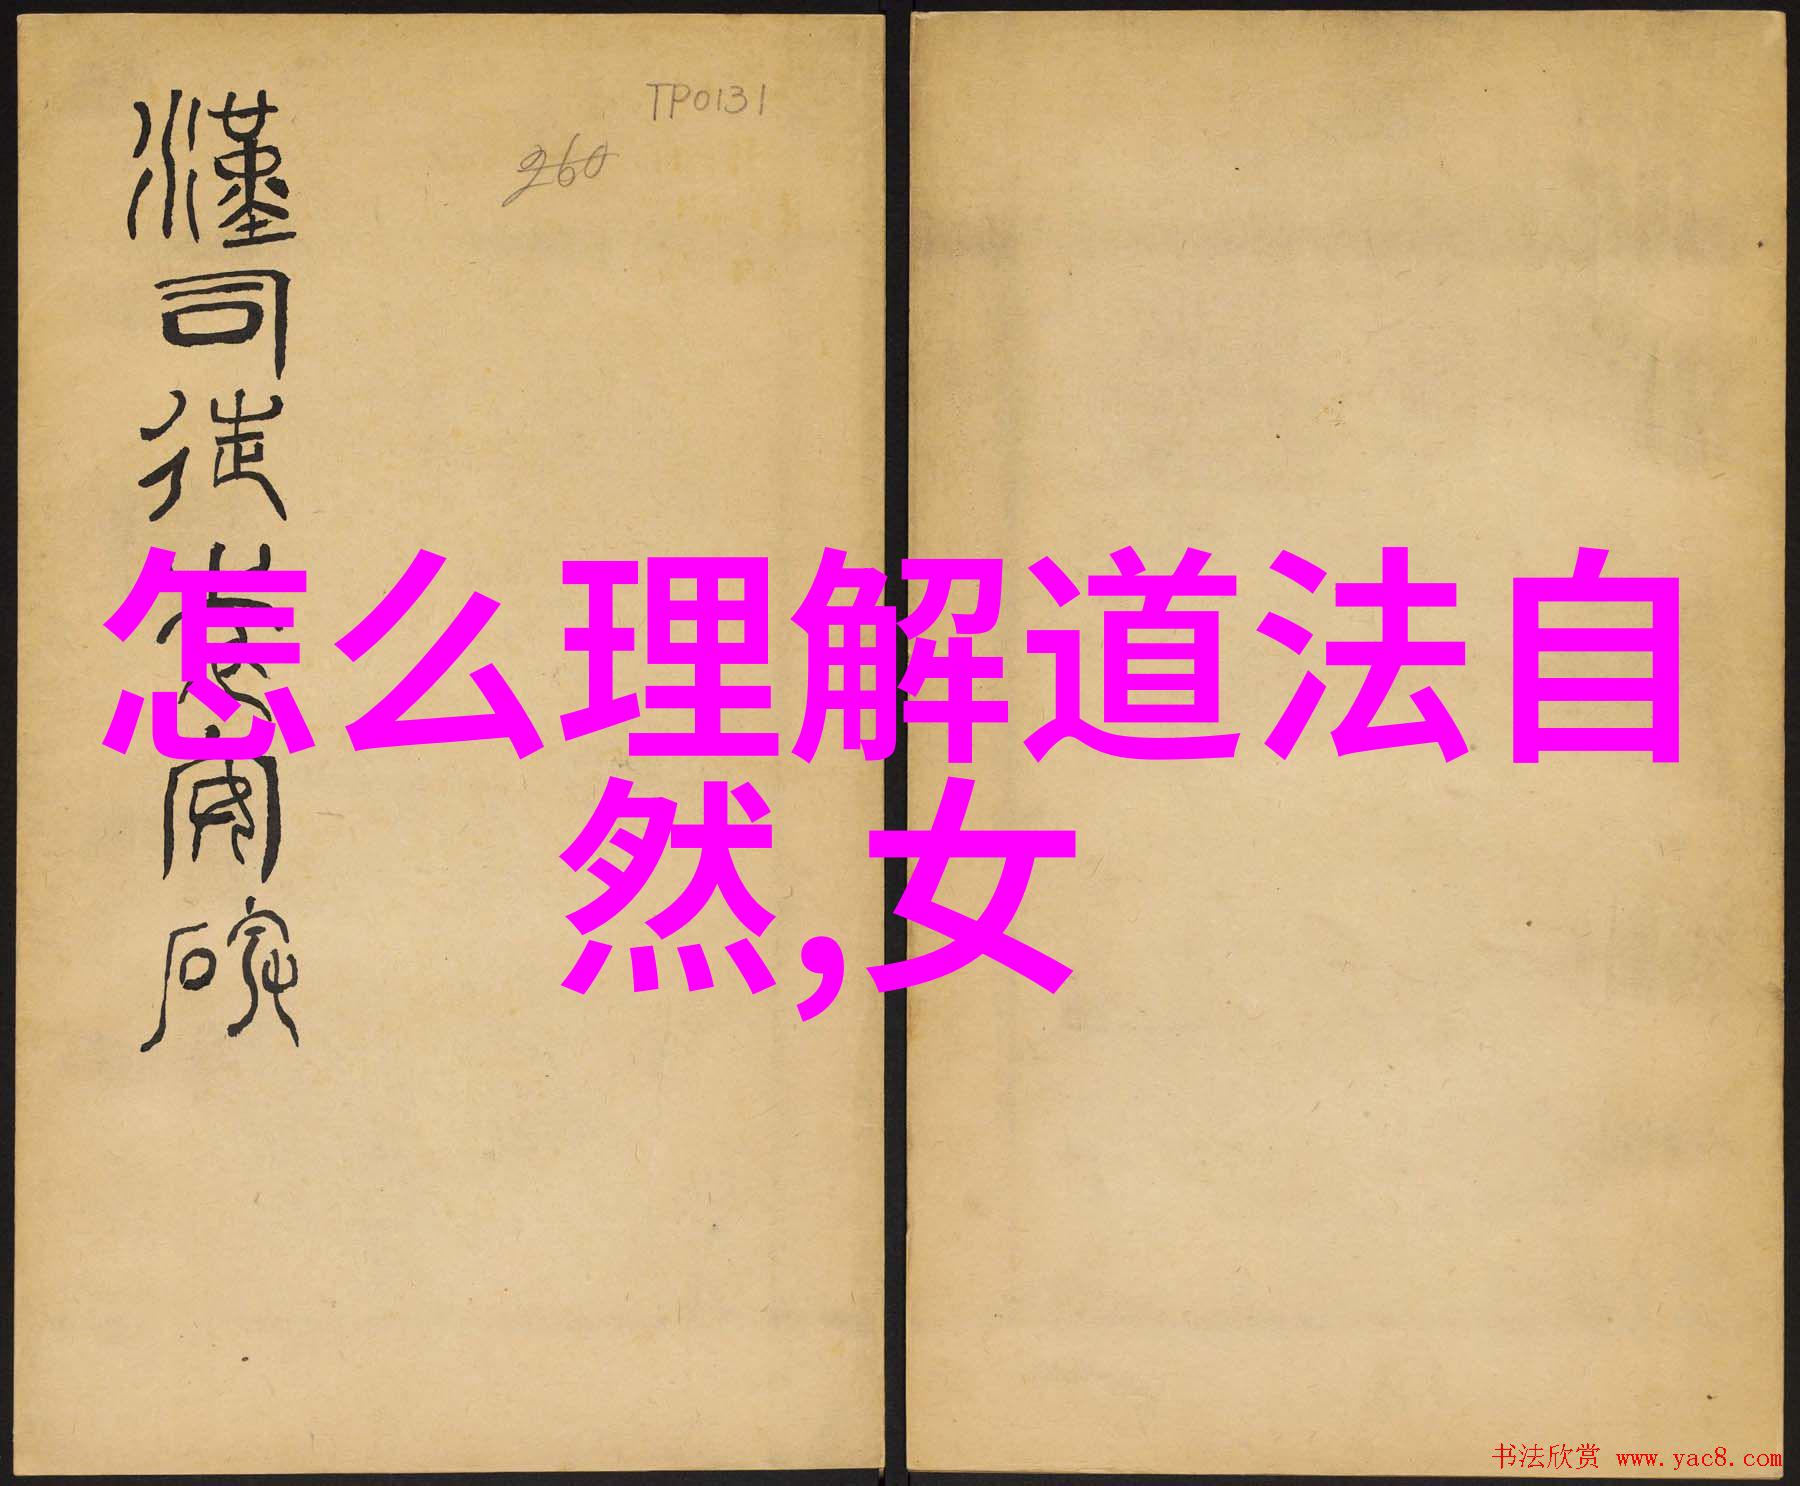 漢司徒袁安碑
TP0131
260
怎么理解道法自
然,女
书法欣赏 www.yac8.com